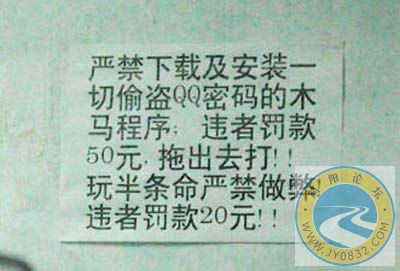 严禁下载及安装一
切偷盗QQ密码的木
马程序；违者罚款
50元，拖出去打！！
玩半条命严禁做弊！
违者罚款20元！！
阳论坛
WWW.JY0832.COM